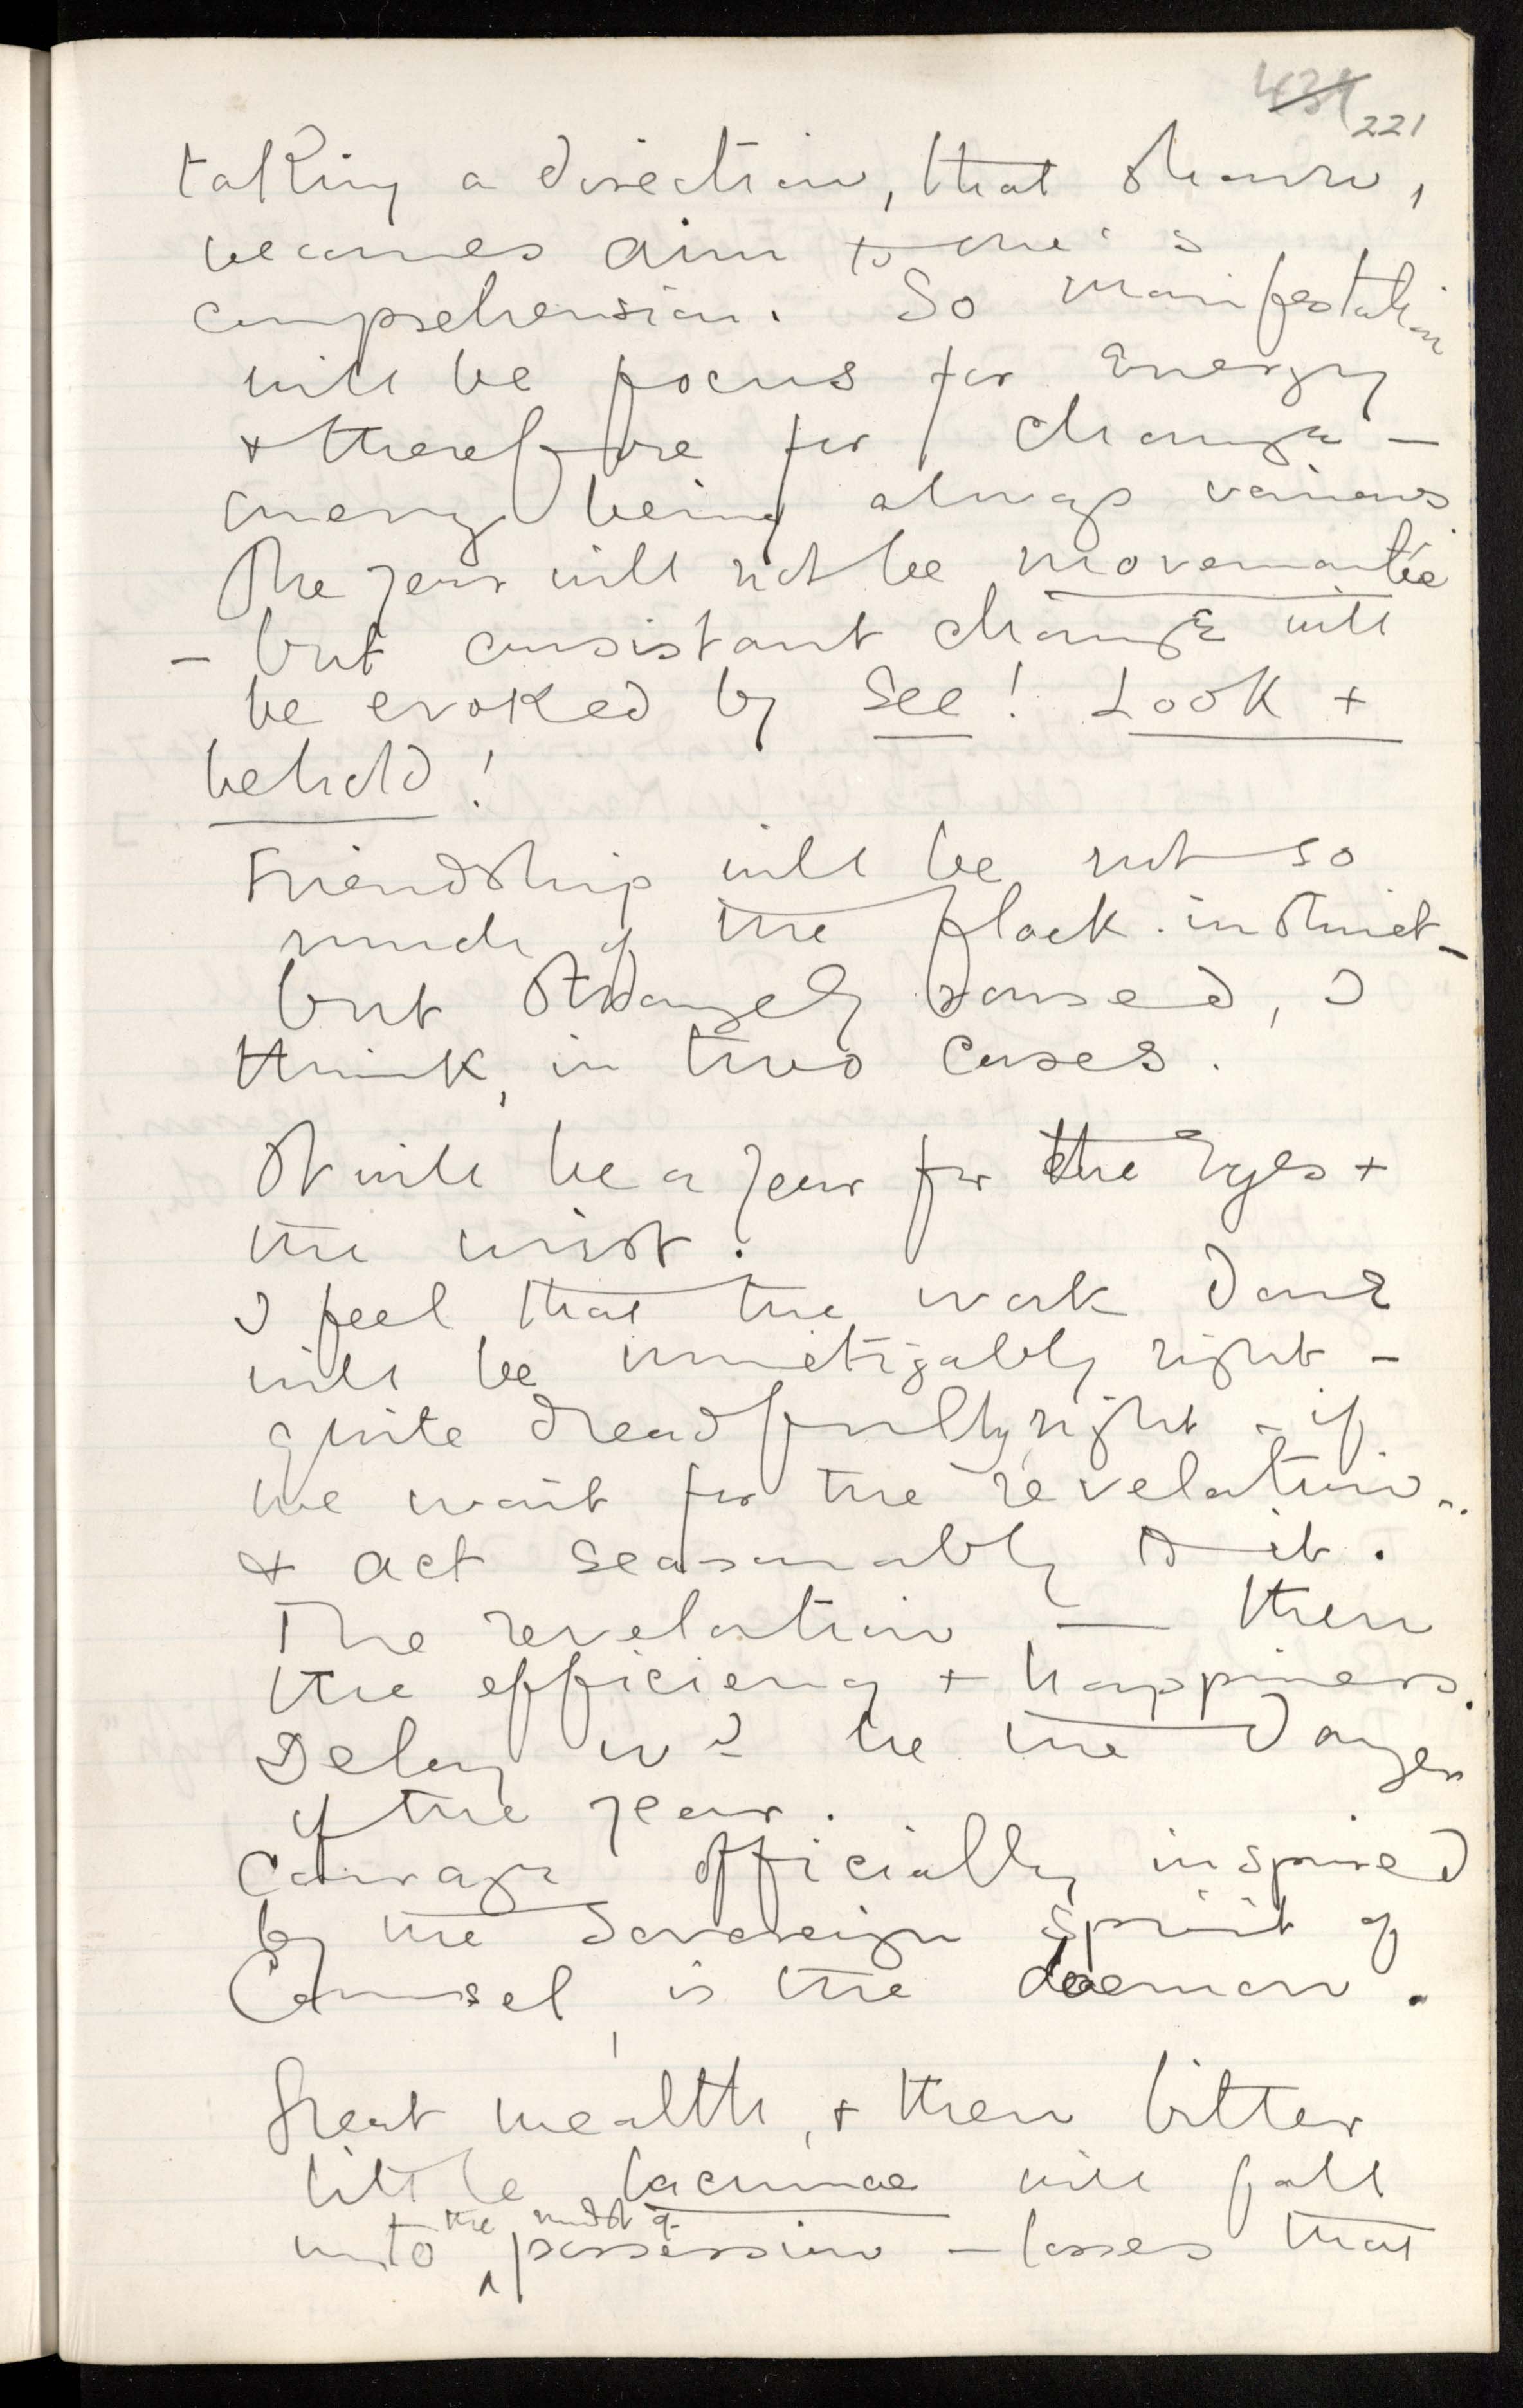 431
221
taking a direction, that shown,
becomes aim to one's
comprehension. So manifestation
will be focus for Energy
& therefore for change —
energy being always various.
The year will not be movementée
— but consistant change will
be evoked by See! Look +
behold!
Friendship will be not so
much of the flock-instinct —
but strangely roused, I
think, in two cases.
It will be a year for the Eyes +
the wrist.
I feel that the work done
will be unmitigably right —
quite dreadfully right — if
we wait for the revelation..
& act seasonably to it.
The revelation, — then
the efficiency + happiness.
Delay wd be the danger
of the year.
Courage officially inspired
by the Sovereign spirit of
Counsel, is the daemon.
Great wealth, + then bitter
little lacunae will fall
into the midst of possession — losses that